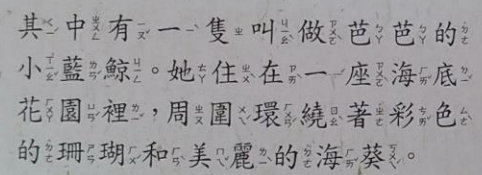 其中有一隻叫做芭芭的
小藍鯨。她住在一座海底
花園裡，周圍環繞著彩色
的珊瑚和美麗的海葵。